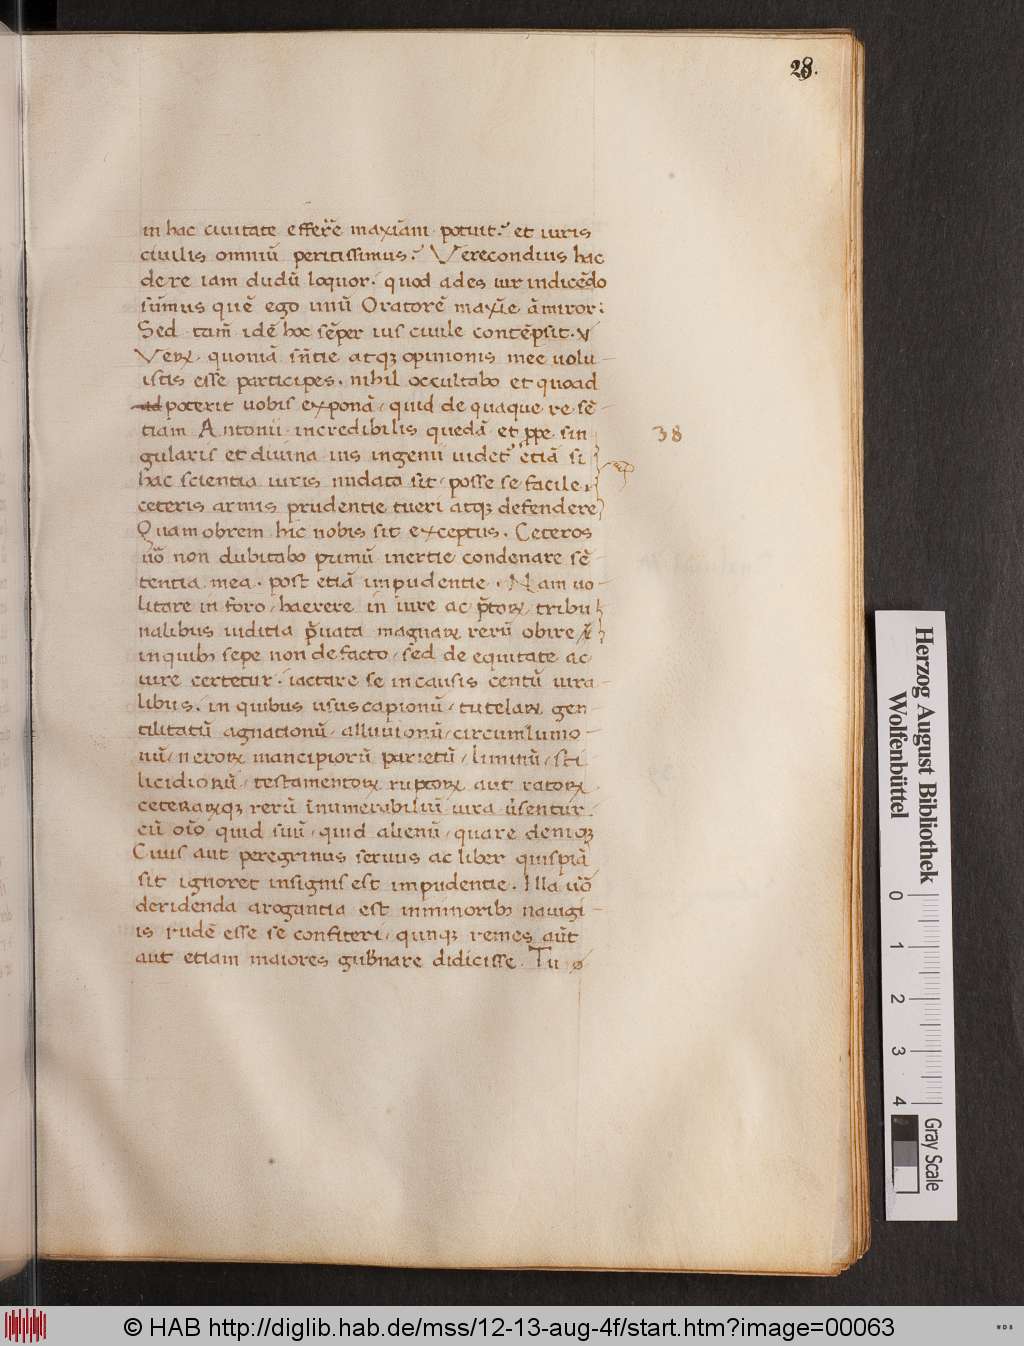 28.
in hac ciuitate efferr̃e maxiãm potuit: et iuris
ciuilis omniũ peritissimus: Verecondius hac
de re iam dudũ loquor. quod ades iur indicẽdo
sũmus quẽ ego unũ Oratorẽ maxĩe ãmiror:
Sed tam̃ idẽ hoc sẽper ius ciuile contẽpsit.
Veꝝ. quoniã sñtie atqꝫ opinionis mee uolu-
istis esse participes. nihil occultabo et quoad
poterit uobis exponã, quid de quaque re sẽ-
tiam Antonii incredibilis quedã et ꝓpe sin
gularis et diuina uis ingenii uidet᷑ etiã si
hac scientia iuris nudata sit, posse se facile,
ceteris armis prudentie tueri atqꝫ defendere
Quam obrem hic nobis sit exceptus. Ceteros
uõ non dubitabo primũ inertie condenare sẽ-
tentia mea. post etiã impudentie. Nam uo-
litare in foro, haerere in iure ac p̃toꝝ tribu
nalibus iuditia p̃uata magnaꝝ rerũ obire
in quibꝫ sepe non de facto, sed de equitate ac
iure certetur. iactare se in causis centũ uira-
libus. in quibus usus capionũ, tutelaꝝ gen-
tilitatũ agnationũ, alluuionũ, circumluuio-
nũ, nexoꝝ mancipiorũ parietũ, luminũ, sti
licidionũ, testamentoꝝ ruptoꝝ aut ratoꝝ
ceteraꝝqꝫ rerũ ĩnumerabiliũ iura ũsentur.
cũ oĩo quid suũ, quid alienũ, quare deniqꝫ
Ciuis aut peregrinus seruus ac liber quispiã
sit ignoret insignis est impudentie. Illa uõ
deridenda arogantia est in minoribꝫ nauigi-
is rudẽ esse se confiteri, qunqꝫ remes aũt
aut etiam maiores gub̃nare didicisse. Tu
38
Herzog August Bibliothek
Wolfenbüttel
0 1 2 3 4
Gray Scale
© HAB http://diglib.hab.de/mss/12-13-aug-4f/start.htm?image=00063